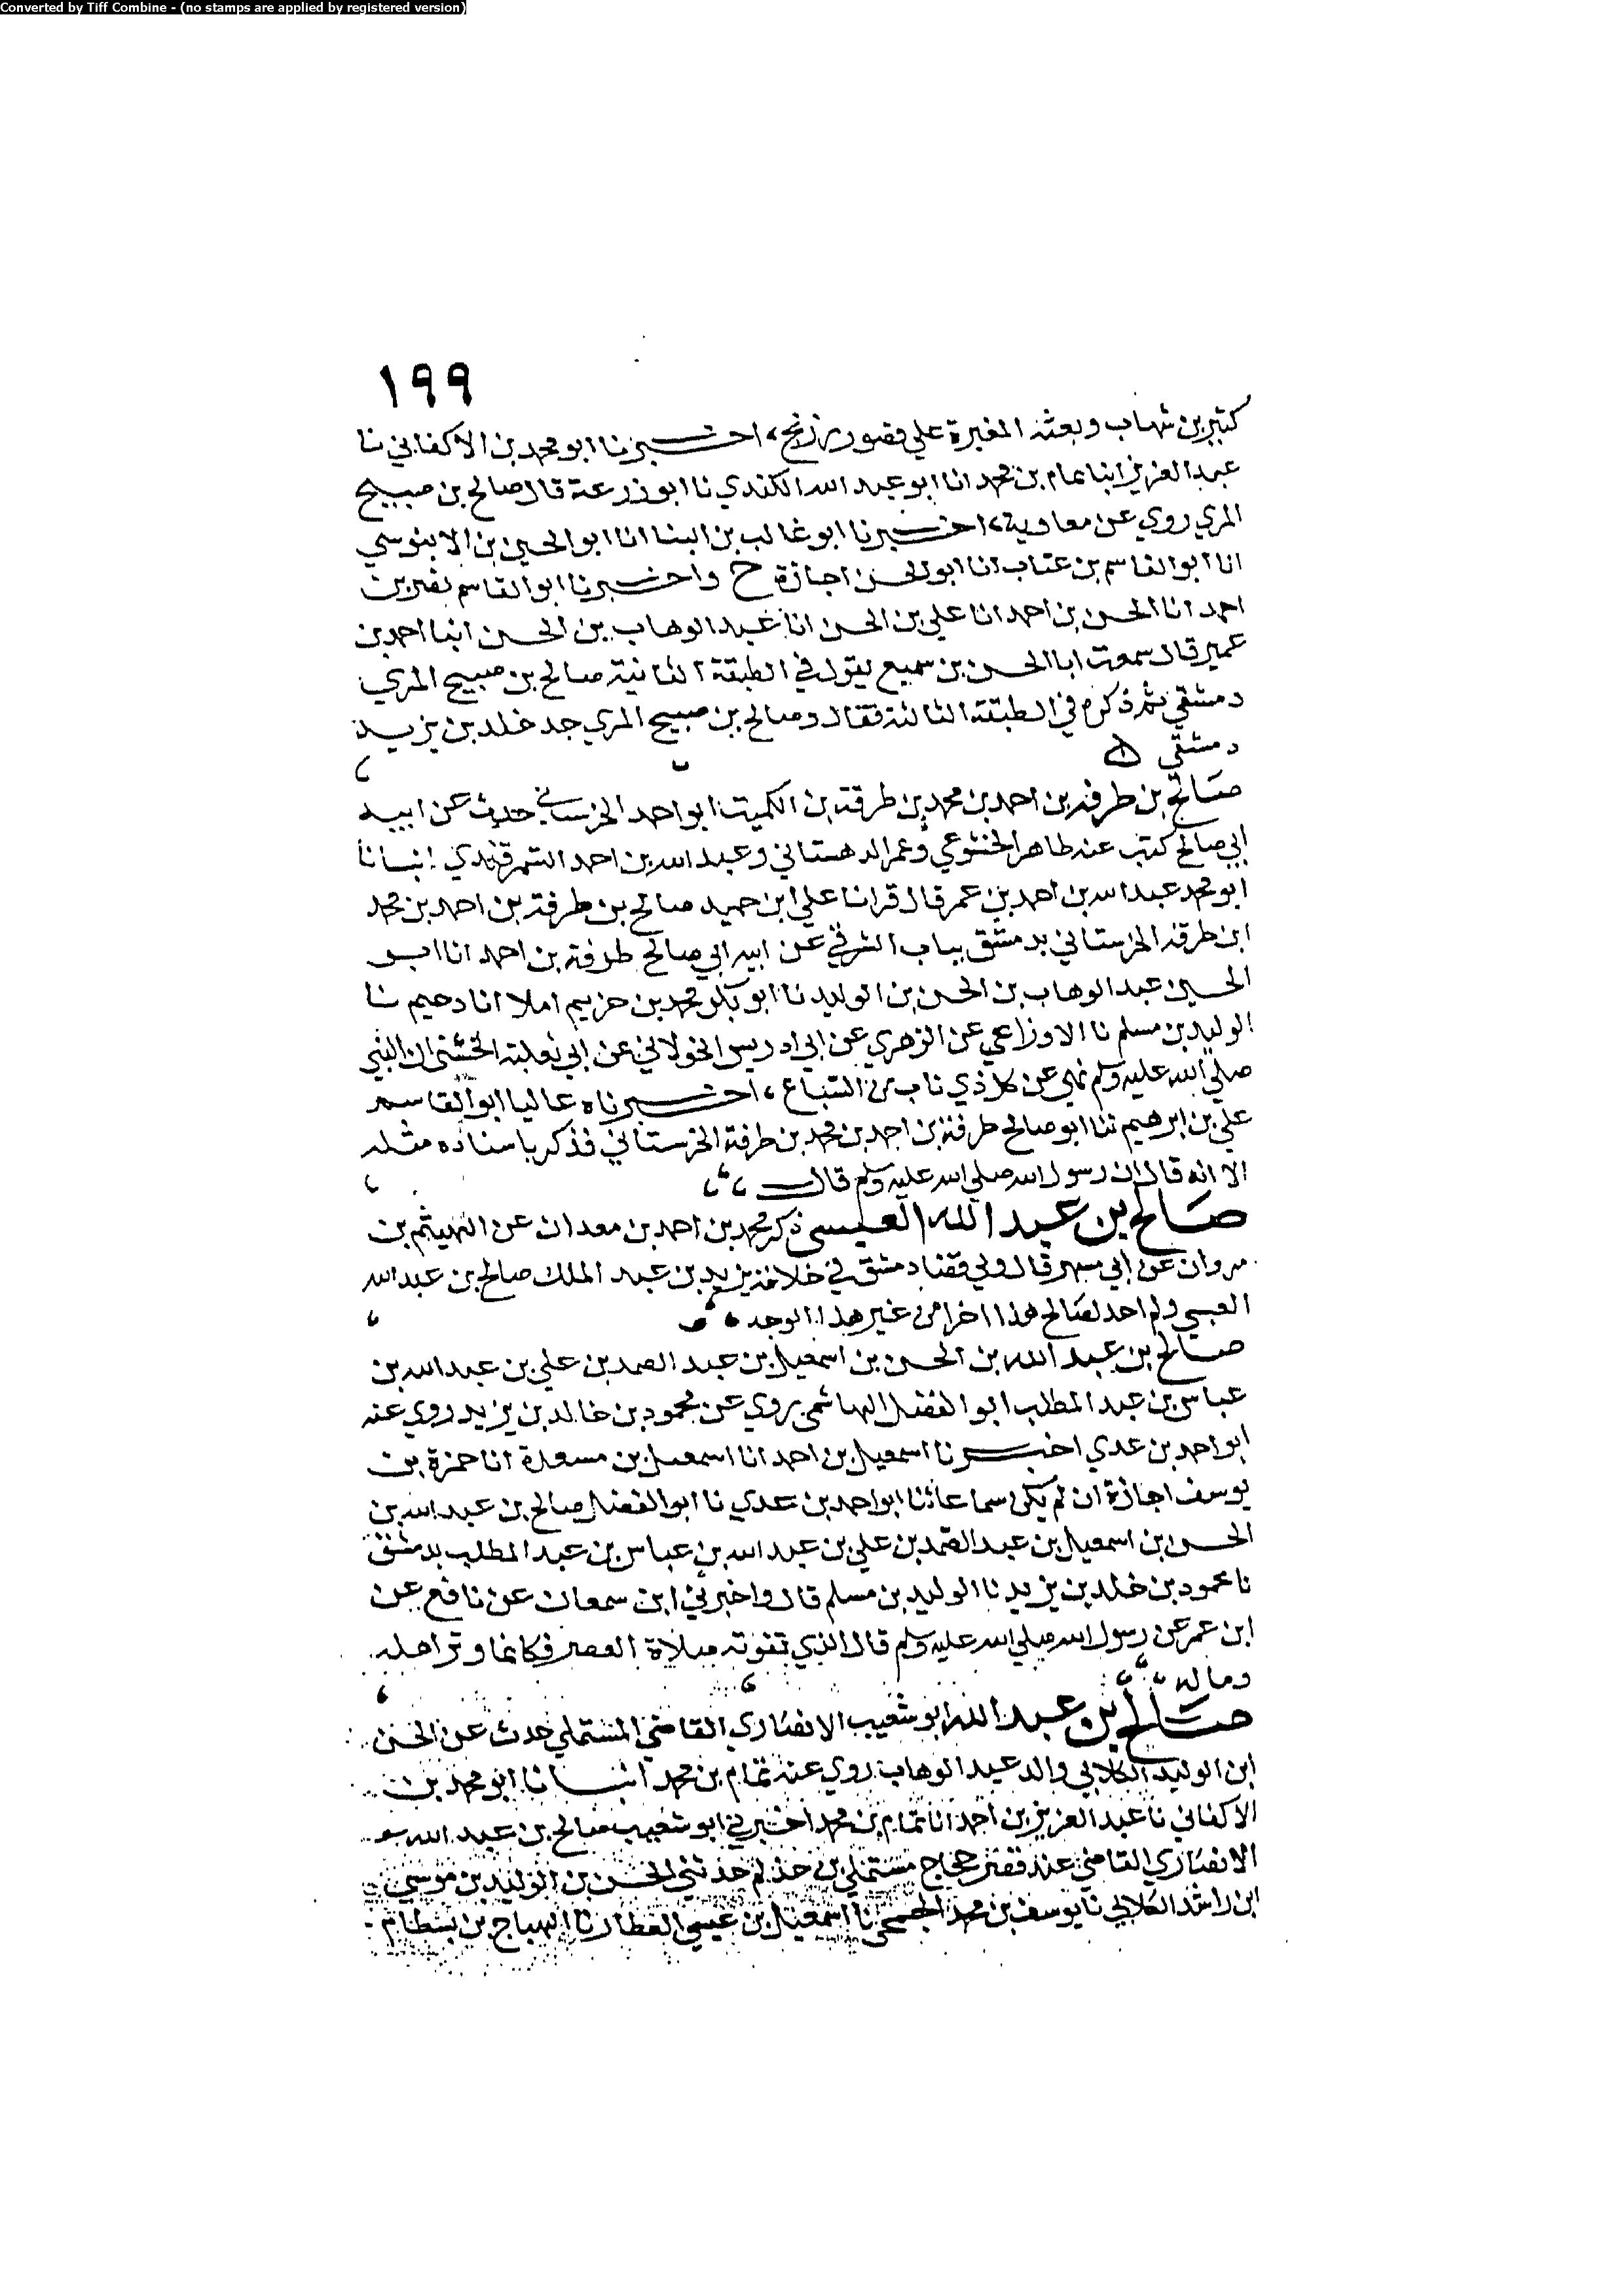 Converted by Tiff Combine - (no stamps are applied by registered version)
١٩٩
كثير بن شهاب وبعثه المغيرة علي اخبرنا ابو محمد بن الاكفاني نا
عبد العزيز ابنا تمام بن محمد انا ابو عبد الله الكندي نا ابو زرعة قال صالح بن صبيح
المري روي عن معاوية، اخبرنا ابو غالب بن البنا انا ابو الحسين بن الابنوسي
انا ابو القاسم بن عتاب انا ابو الحسن اجازة ح واخبرنا ابو القاسم نصر بن
احمد انا الحسن بن احمد انا علي بن الحسن انا عبد الوهاب بن الحسن ابنا احمد بن
عمير قال سمعت ابا الحسن بن سميع يقول في الطبقة الثانية صالح بن صبيح المري
دمشقي ثم ذكره في الطبقة الثالثة فقال وصالح بن صبيح المري جد خلد بن يزيد
دمشقي ه
صالح بن طرفة بن احمد بن محمد بن طرفة بن الكميت ابو احمد الخرستاني حدث عن ابيه
ابي صالح كتب عنه طاهر الخشوعي وعمر الدهستاني وعبد الله بن احمد السمرقندي انبانا
ابو محمد عبد الله بن احمد بن عمر قال قرانا علي ابن حميد صالح بن طرفة بن احمد بن محمد
ابن طرفة الخرستاني بدمشق بباب الشرقي عن ابيه ابي صالح طرفة بن احمد انا ابو
الحسين عبد الوهاب بن الحسن بن الوليد نا ابو بكر محمد بن خزيم املا انا دحيم نا
الوليد بن مسلم نا الاوزاعي عن الزهري عن ابي ادريس الخولاني عن ابي ثعلبة الخشني ان النبي
صلي الله عليه وسلم نهي عن كل ذي ناب من السباع، اخبرناه عاليا ابو القاسم
علي بن ابرهيم ثنا ابو صالح طرفة بن احمد بن محمد بن طرفة الخرستاني فذكر باسناده مثله
الا انه قال ان رسول الله صلي الله عليه وسلم قال
صالح بن عبد الله العبسي ذكر محمد بن احمد بن معدان عن الهيثم بن
مروان عن ابي مسهر قال ولي قضا دمشق في خلافة يزيد بن عبد الملك صالح بن عبد الله
العبسي ولم اجد لصالح هذا اخرا من غير هذا الوجه
صالح بن عبد الله بن الحسن بن اسمعيل بن عبد الصمد بن علي بن عبد الله بن
عباس بن عبد المطلب ابو الفضل الهاشمي روي عن محمود بن خالد بن يزيد روي عنه
ابو احمد بن عدي اخبرنا اسمعيل بن احمد انا اسمعيل بن مسعدة انا حمزة بن
يوسف اجازة ان لم يكن سماعا انا ابو احمد بن عدي نا ابو الفضل صالح بن عبد الله بن
الحسن بن اسمعيل بن عبد الصمد بن علي بن عبد الله بن عباس بن عبد المطلب بدمشق
نا محمود بن خلد بن يزيد نا الوليد بن مسلم قال واخبرني ابن سمعان عن نافع عن
ابن عمر عن رسول الله صلي الله عليه وسلم قال الذي تفوته صلاة العصر فكانما وتر اهله
وماله
صالح بن عبد الله ابو شعيب الانصاري القاضي المستملي حدث عن الحسن
ابن الوليد الكلابي والد عبد الوهاب روي عنه تمام بن محمد انبانا ابو محمد بن
الاكفاني نا عبد العزيز بن احمد انا تمام بن محمد اخبرني ابو شعيب صالح بن عبد الله
الانصاري القاضي عند قصر حجاج مستملي بن حذلم حدثني الحسن بن الوليد بن موسي
ابن راشد الكلابي نا يوسف بن محمد نا اسمعيل بن عيسي العطار نا الهياج بن بسطام